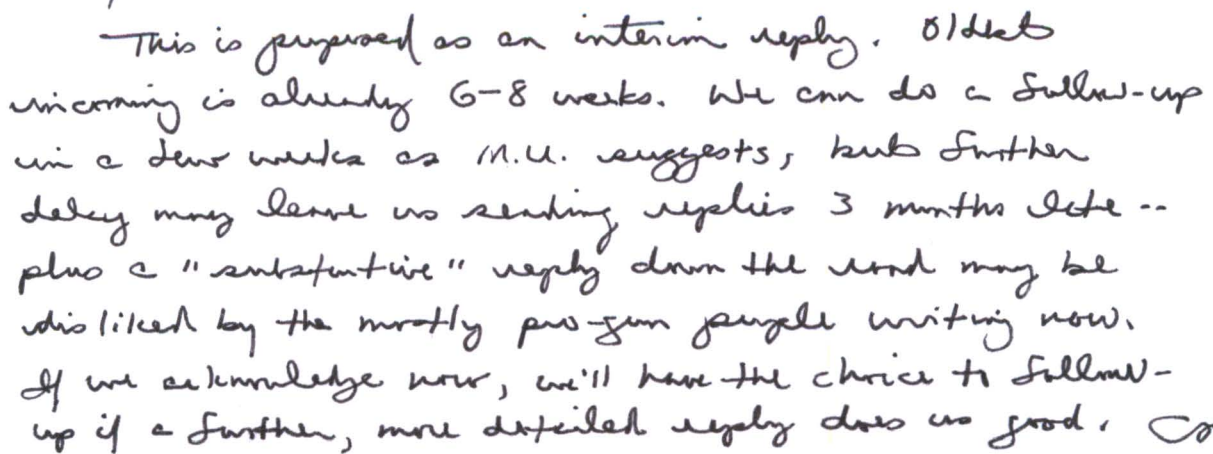 This is proposed as an interim reply. Oldest
incoming is already 6-8 weeks. We can do a follow-up
in a few weeks as M.U. suggests, but further
delay may leave us sending replies 3 months late --
plus a "substantive" reply down the road may be
disliked by the mostly pro-gun people writing now.
If we acknowledge now, we'll have the choice to follow-
up if a further, more detailed reply does us good.